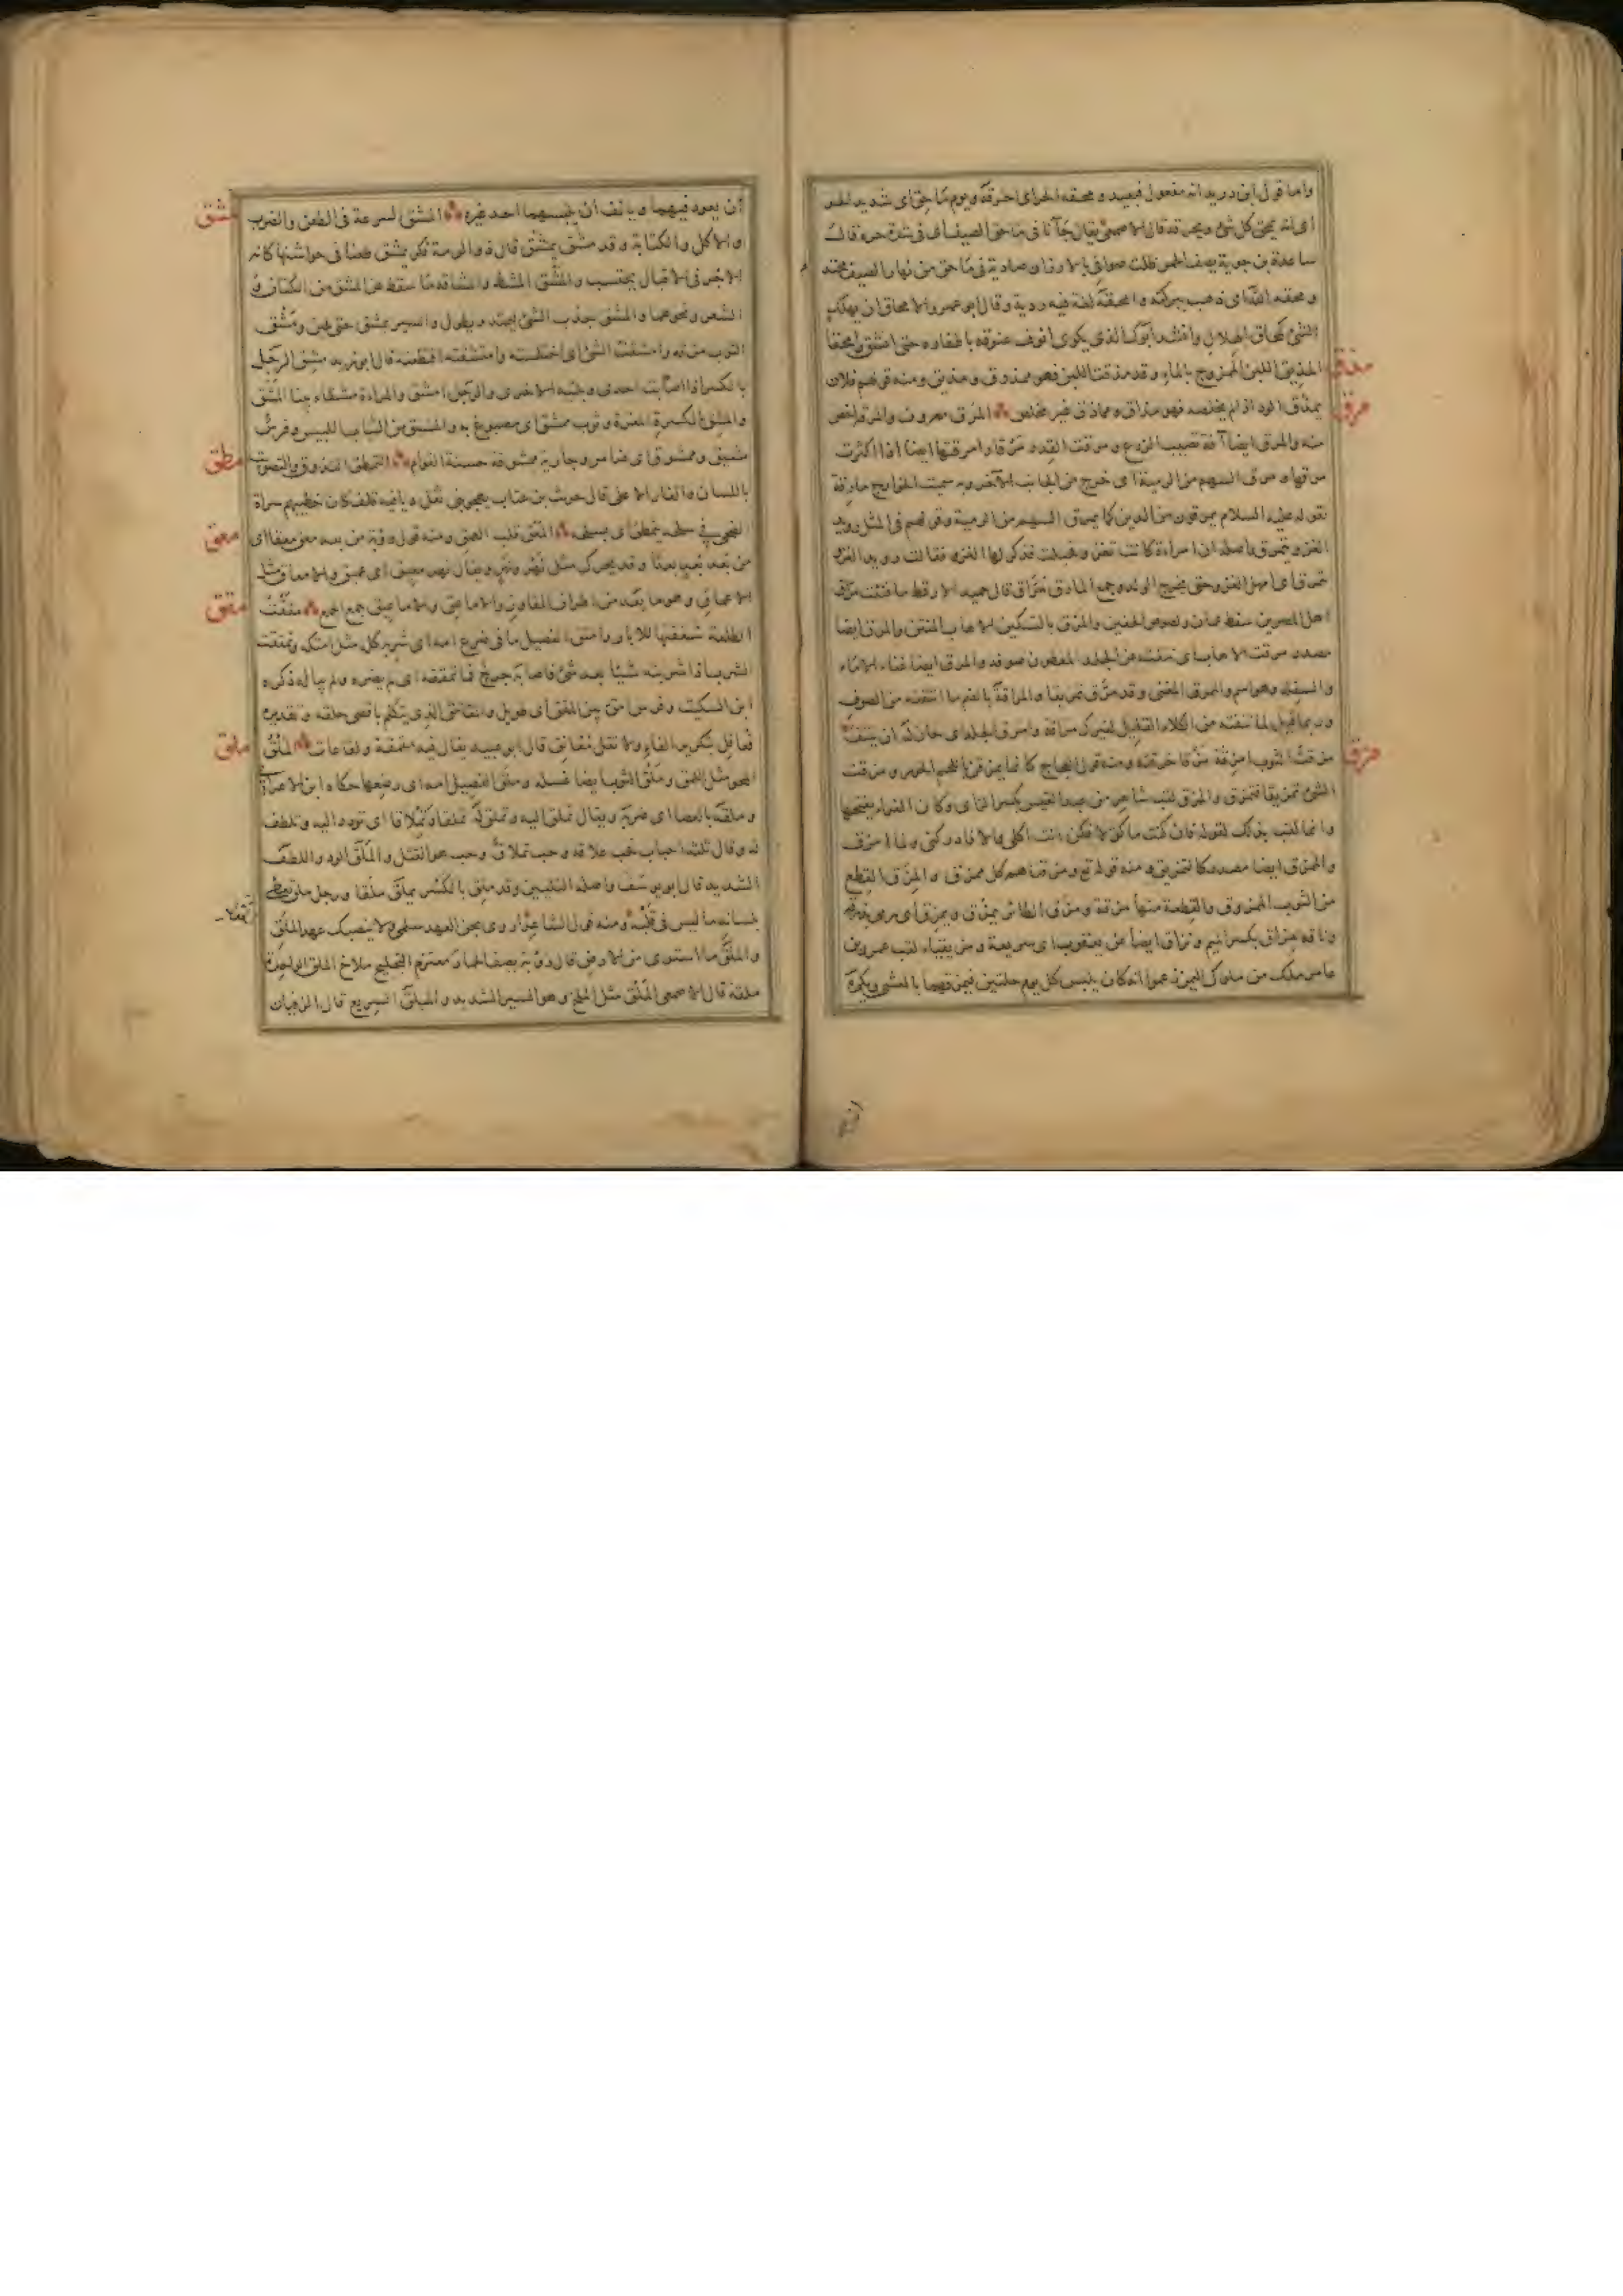 واما قول ابن دريد انه مفعول فبعيد ومحقه الحر اى احرقه ويوم ماحق اى شديد الحر
اى انه يمحق كل شئ ويحرقه قال الاصمعى يقال جآنا فى ماحق الصيف اى فى شدة حره قال
ساعدة بن جوية يصف الحمر ظلت صوافن بالارزان صادية فى ماحق من نهار الصيف محتدم
ومحقه الله اى ذهب ببركته وامحقه لغة فيه ردية وقال ابو عمرو الامحاق ان يهلك
الشئ كمحاق الهلال وانشد ابوك الذى يكوى انوف عنوقه باظفاره حتى انس وامحقا
مذق
المذيق اللبن الممزوج بالماء وقد مذقت اللبن فهو ممذوق ومذيق ومنه قولهم فلان
يمذق الود اذا لم يخلصه فهو مذاق ومماذق غير مخلص المرق معروف والمرقة اخص
مرق
منه والمرق ايضا آفة تصيب الزرع ومرقت القدر مرقا وامرقتها ايضا اذا اكثرت
مرقها ومرق السهم من الرمية اى خرج من الجانب الآخر وبه سميت الخوارج مارقة
لقوله عليه السلام يمرقون من الدين كما يمرق السهم من الرمية وقولهم فى المثل رويد
الغزو ينمرق واصله ان امراة كانت تغزو فحبلت فذكر لها الغزو فقالت رويد الغزو
ينمرق اى امهل الغزو حتى يخرج الولد وجمع المارق مراق قال حميد الارقط ما فتئت مراق
اهل المصرين سقط عمان ولصوص الجفين والمرق بالتسكين الاهاب المنتن والمرق ايضا
مصدر مرقت الاهاب اى نتفت عن الجلد المعطون صوفه والمرق ايضا غناء الاماء
والسفلة وهو اسم والممرق المغنى وقد مرق تمريقا والمراقة بالضم ما انتتفته من الصوف
وربما قيل لما تنتفه من الكلاء القليل لبعيرك مراقة وامرق الجلد اى حان له ان ينتف
مزق
مزقت الثوب امزقه مزقا خرقته ومنه قول العجاج كانما يمزقن باللحم الحور ومزقت
الشئ تمزيقا فتمزق والممزق لقب شاعر من عبد القيس بكسر الزاى وكان الفراء يفتحها
وانما لقب بذلك لقوله فان كنت ماكولا فكن انت اكلى والا فادركنى ولما امزق
والممزق ايضا مصدر كالتمزيق ومنه قوله تع ومزقناهم كل ممزق والمزق القطع
من الثوب الممزوق والقطعة منها مزقة ومزق الطائر يمزق ويمزق اى رمى بذرقه
وناقة مزاق بكسر الميم ونزاق ايضا عن يعقوب اى سريعة ومزيقياء لقب عمرو بن
عامر ملك من ملوك اليمن زعموا انه كان يلبس كل يوم حلتين فيمزقهما بالعشى ويكره
ان يعود فيهما ويانف ان يلبسهما احد غيره المشق السرعة فى الطعن والضرب
مشق
والاكل والكتابة وقد مشق يمشق قال ذو الرمة فكر يمشق طعنا فى جواشنها كانه
الاجر فى الاقبال يحتسب والمشق المشط والمشاقة ما سقط عن المشق من الكتان و
الشعر ونحوهما والمشق جذب الشئ ليمتد ويطول والسير يمشق حتى يلين ومشق
الثوب مزقه وامتشقت الشئ اى اختلسته وامتشقته اقتطعته قال ابو زيد مشق الرجل
بالكسر اذا اصابت احدى ربلتيه الاخرى والرجل امشق والمراة مشقاء بينا المشق
والمشق بالكسر المغرة وثوب ممشق اى مصبوغ به والمشق من الثياب اللبيس وفرس
مشيق وممشوق اى ضامر وجارية ممشوقة حسنة القوام التمطق التذوق والتصويت
مطق
باللسان والغار الاعلى قال حريث بن عتاب يهجو بنى ثعل ديافية قلف كان خطيبهم سراة
الضحى فى سلحه يتمطق اى بسلحه المعق قلب العمق ومنه قول روبة من بعد معق معقا اى
معق
من بعد بعد بعدا وقد يحرك مثل نهر ونهر ويقال نهر معيق اى عميق والامعاق مثل
الاعماق وهو ما بعد من اطراف المفاوز والاماعق والاماعيق جمع الجمع مققت
مقق
الطلعة شققتها للابار وامتق الفصيل ما فى ضرع امه اى شربه كله مثل امتكه وتمققت
الشراب اذا شربته شيئا بعد شئ واصابه جرح فما تمققه اى لم يضره ولم يباله ذكره
ابن السكيت وفرس امق بين المقق اى طويل والمقامق الذى يتكلم باقصى حلقه وتقديره
فعافل بتكرير الفاء ولا تقل مقانق قال ابو عبيد يقال فيه مقمقة ولقاعات الملق
ملق
المحو مثل اللمق وملق الثوب ايضا غسله وملق الفصيل امه اى رضعها حكاه ابن الاعرابى
وملقه بالعصا اى ضربه ويقال تملق اليه وتملق له تملقا وتملاقا اى تودد اليه وتلطف
له وقال ثلثة احباب فحب علاقة وحب تملاق وحب هو القتل والملق الود واللطف
الشديد قال ابو يوسف واصله التليين وقد ملق بالكسر يملق ملقا ورجل ملق يعطى
بلسانه ما ليس فى قلبه ومنه قول الشاعر اروى بجن العهد سلمى ولا ينصبك عهد الملق
والملق ما استوى من الارض قال روبة يصف الحمار معتزم التجليح ملاخ الملق الواحدة
ملقة قال الاصمعى الملق مثل الملخ وهو السير الشديد والميلق السريع قال الزفيان